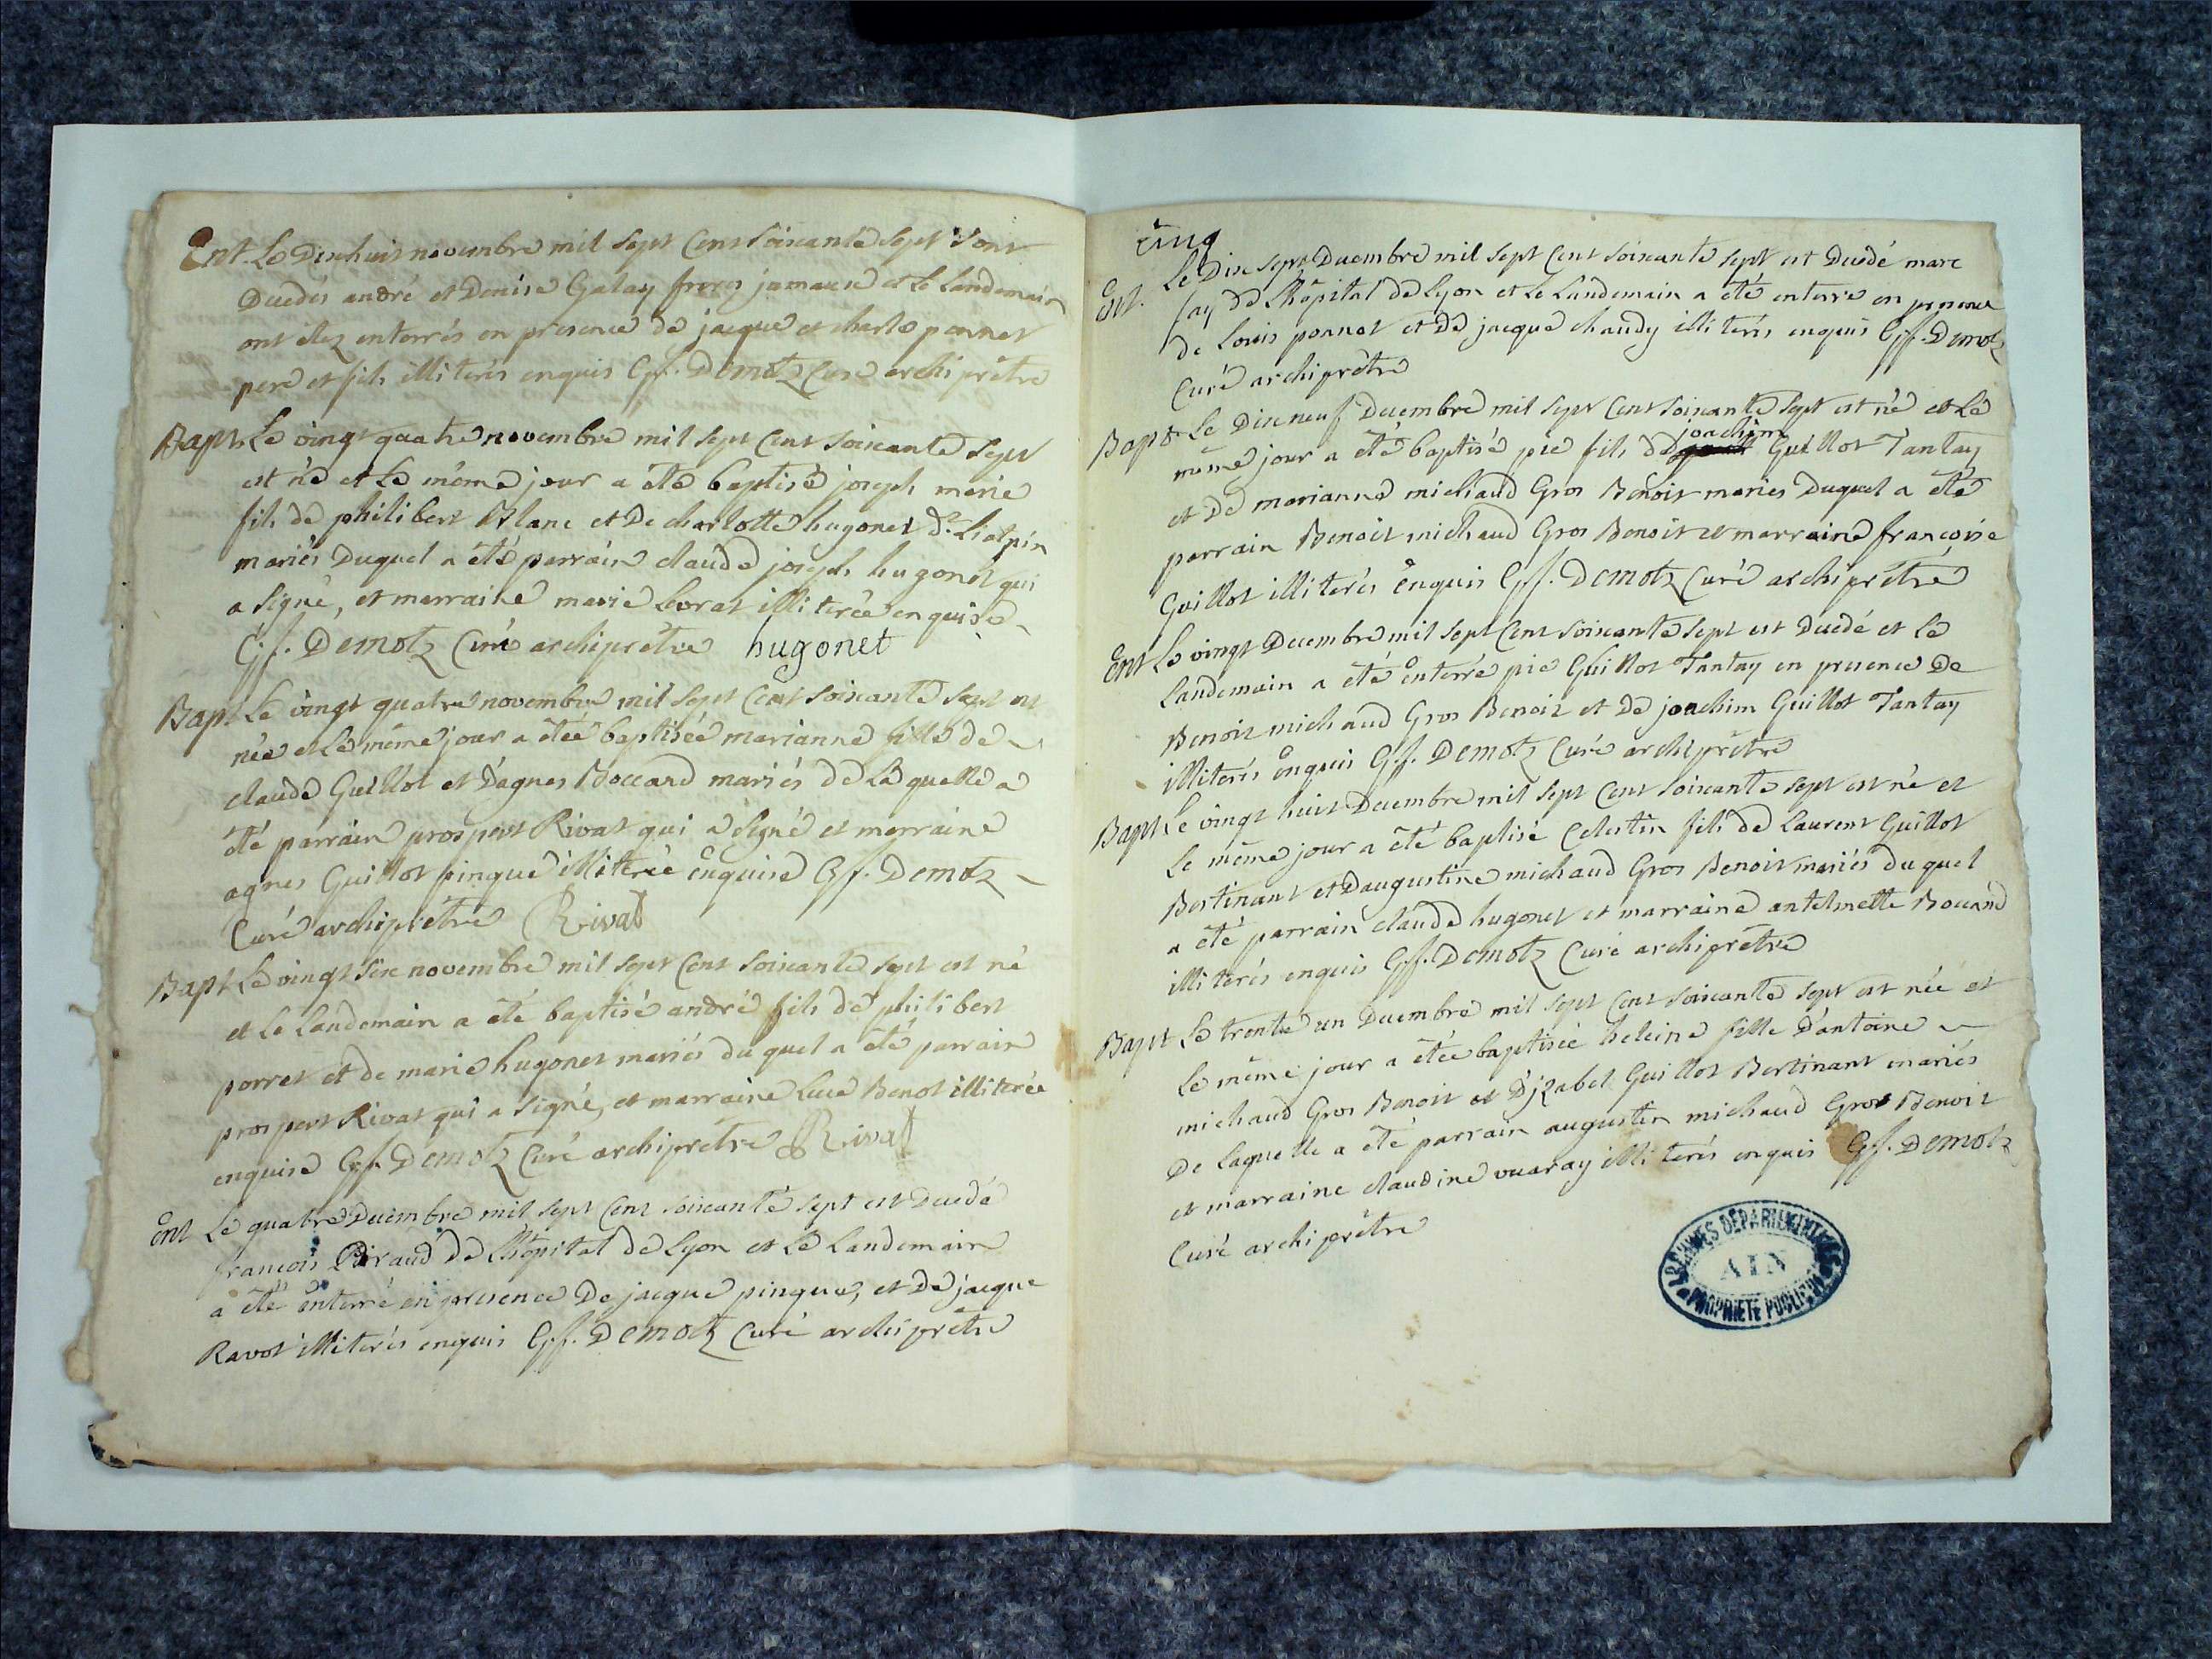 Ent. Le Dixhuit novembre mil sept Cent soixante sept sont
Decedés andré et Denise Galay freres jumaux et le landemain
ont étez enterrés en presence de jacque et charle ponnet
pere et fils illiterés enquis G.f. Demotz Curé archiprêtre
Bapt. Le vingt quatre novembre mil sept Cent soixante sept
est né et le même jour a été baptisé joseph marie
fils de philibert Blanc et De charlotte hugonet d. Lialpin
mariés Duquel a été parrain claude joseph hugonet qui
a signé, et marraine marie borat illiterée enquise
G.f. Demotz Curé archiprêtre hugonet
Bapt Le vingt quatre novembre mil sept Cent soixante sept est
née et le même jour a étée baptisée marianne fille de
claude Guillot et D'agnes Boccard mariés de la quelle a
été parrain prospert Rivat qui a signé et marraine
agnes Guillot pingue illiterée enquise G.f. Demotz
Curé archiprêtre Rivat
Bapt Le vingt six novembre mil sept Cent soixante sept est né
et le landemain a été baptisé andré fils de philibert
porret et de marie hugonet mariés du quel a été parrain
prospert Rivat qui a signé, et marraine Luce Benot illiterée
enquise G.f. Demotz Curé archiprêtre Rivat
Ent Le quatre Decembre mil sept Cent soixante sept est decedé
francois Piraud de l'hôpital de Lyon et le landemain
a été enterré en presence De jacque pingue, et De jacque
Ravot illiterés enquis G.f. Demotz Curé archiprêtre
cinq
Ent. Le Dix sept Decembre mil sept Cent soixante sept est Decedé marc
fay de L'hôpital de Lyon et le landemain a été enterré en presence
de Louis ponnet et de jacque chaudy illiterés enquis G.f. Demotz
Curé archiprêtre
Bapt Le Dix neuf Decembre mil sept Cent soixante sept est né et le
joachim
même jour a été baptisé pie fils de Guillot Tantay
et de marianne michaud Gros Benoit mariés Duquel a été
parrain Benoit michaud Gros Benoit et marraine françoise
Guillot illiterés enquis G.f. Demotz Curé archiprêtre
Ent Le vingt Decembre mil sept Cent soixante sept est decedé et le
landemain a été enterré pie Guillot Tantay en presence De
Benoit michaud Gros Benoit et de joachim Guillot Tantay
illiterés enquis G.f. Demotz Curé archiprêtre
Bapt Le vingt huit Decembre mil sept Cent soixante sept est né et
le même jour a été baptisé Celestin fils de Laurent Guillot
Bertinant et D'augustine michaud Gros Benoit mariés du quel
a été parrain claude hugonet et marraine antelmette Bocand
illiterés enquis G.f. Demotz Curé archiprêtre
Bapt Le trente un Decembre mil sept Cent soixante sept est née et
le même jour a étée baptisée heleine fille D'antoine
michaud Gros Benoit et D'jzabel Guillot Bertinant mariés
De laquelle a été parrain augustin michaud Gros Benoit
et marraine claudine vuaray illiterés enquis G.f. Demotz
Curé archiprêtre
ARCHIVES DEPARTEMENTALES
AIN
PROPRIETE PUBLIQUE